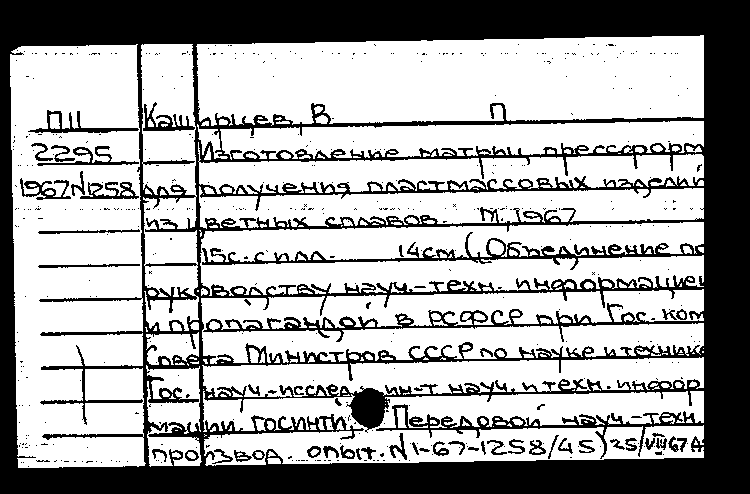 П11 Каширцев, В П
2295 Изготовление матриц прессформ
1967N1258 для получения пластмассовых изделий
из цветных сплавов. М., 1967
15с. с илл. 14см. (Объединение по
руководству науч.-техн. информацией
и пропагандой в РСФСР при Гос. ком
Совета Министров СССР по науке и технике
Гос. науч.-исслед. ин-т науч. и техн. инфор
мации. ГОСИНТИ, Передовой науч.-техн.
производ. опыт. N1-67-1258/45) 25/VIII67